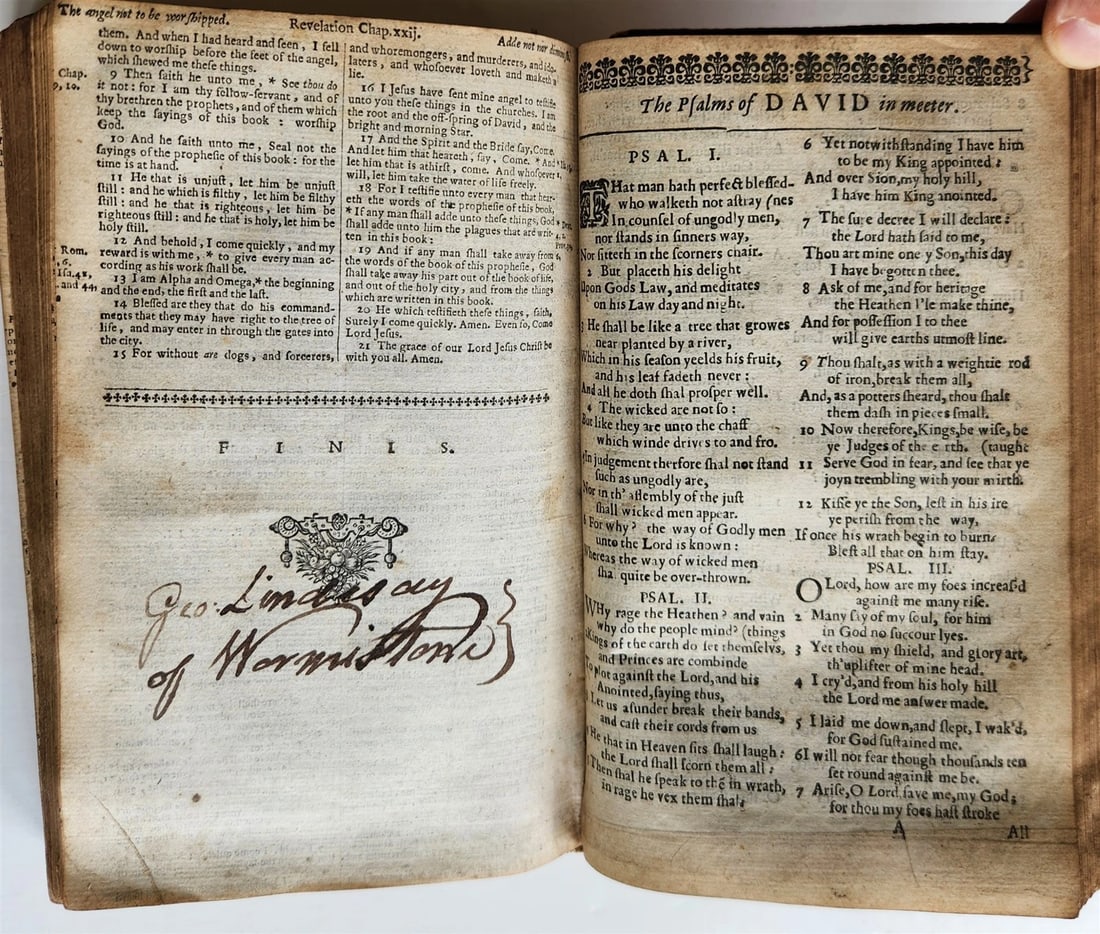 The angel not to be worſhipped.
Revelation Chap.xxij.
Adde not nor
them. And when I had heard and ſeen, I fell
down to worſhip before the feet of the angel,
which ſhewed me theſe things.
Chap.
9 Then ſaith he unto me, * See thou do
it not: for I am thy fellow-ſervant, and of
thy brethren the prophets, and of them which
keep the ſayings of this book: worſhip
God.
10 And he ſaith unto me, Seal not the
ſayings of the propheſie of this book: for the
time is at hand.
11 He that is unjuſt, let him be unjuſt
ſtill: and he which is filthy, let him be filthy
ſtill: and he that is righteous, let him be
righteous ſtill: and he that is holy, let him be
holy ſtill.
12 And behold, I come quickly, and my
Rom.
reward is with me, * to give every man ac-
cording as his work ſhall be.
13 I am Alpha and Omega,* the beginning
and 44
and the end, the firſt and the laſt.
14 Bleſſed are they that do his command-
ments that they may have right to the tree of
life, and may enter in through the gates into
the city.
15 For without are dogs, and ſorcerers,
and whoremongers, and murderers, and ido-
laters, and whoſoever loveth and maketh a
lie.
16 I Jeſus have ſent mine angel to teſtifie
unto you theſe things in the churches. I am
the root and the off-ſpring of David, and the
bright and morning Star.
17 And the Spirit and the Bride ſay, Come.
And let him that heareth, ſay, Come. * And
let him that is athirſt, come. And whoſoever
will, let him take the water of life freely.
18 For I teſtifie unto every man that hear-
eth the words of the propheſie of this book,
* If any man ſhall adde unto theſe things, God
ſhall adde unto him the plagues that are writ-
ten in this book:
19 And if any man ſhall take away from
the words of the book of this propheſie, God
ſhall take away his part out of the book of life,
and out of the holy city, and from the things
which are written in this book.
20 He which teſtifieth theſe things, ſaith,
Surely I come quickly. Amen. Even ſo, Come
Lord Jeſus.
21 The grace of our Lord Jeſus Chriſt be
with you all. Amen.
F I N I S.
Geo: Lindesay
of Wormistone
The Pſalms of DAVID in meeter.
PSAL. I.
THat man hath perfect bleſſed-
who walketh not aſtray (nes
In counſel of ungodly men,
nor ſtands in ſinners way,
Nor ſitteth in the ſcorners chair.
2 But placeth his delight
Upon Gods Law, and meditates
on his Law day and night.
3 He ſhall be like a tree that growes
near planted by a river,
Which in his ſeaſon yeelds his fruit,
and his leaf fadeth never:
And all he doth ſhal proſper well.
4 The wicked are not ſo:
But like they are unto the chaff
which winde drives to and fro.
In judgement therfore ſhal not ſtand
ſuch as ungodly are,
Nor in th' aſſembly of the juſt
ſhall wicked men appear.
6 For why? the way of Godly men
unto the Lord is known:
Whereas the way of wicked men
ſhal quite be over-thrown.
PSAL. II.
WHy rage the Heathen? and vain
why do the people mind? (things
Kings of the earth do ſet themſelvs,
and Princes are combinde
To plot againſt the Lord, and his
Anointed, ſaying thus,
Let us aſunder break their bands,
and caſt their cords from us
He that in Heaven ſits ſhall laugh:
the Lord ſhall ſcorn them all:
Then ſhal he ſpeak to thē in wrath,
in rage he vex them ſhal:
6 Yet notwithſtanding I have him
to be my King appointed:
And over Sion, my holy hill,
I have him King anointed.
7 The ſure decree I will declare:
the Lord hath ſaid to me,
Thou art mine one y Son, this day
I have begotten thee.
8 Ask of me, and for heritage
the Heathen I'le make thine,
And for poſſeſſion I to thee
will give earths utmoſt line.
9 Thou ſhalt, as with a weightie rod
of iron, break them all,
And, as a potters ſheard, thou ſhalt
them daſh in pieces ſmall.
10 Now therefore, Kings, be wiſe, be
ye Judges of the e rth. (taught
11 Serve God in fear, and ſee that ye
joyn trembling with your mirth.
12 Kiſſe ye the Son, leſt in his ire
ye periſh from the way,
If once his wrath begin to burn:
Bleſt all that on him ſtay.
PSAL. III.
O Lord, how are my foes increaſ'd
againſt me many riſe.
2 Many ſay of my ſoul, for him
in God no ſuccour lyes.
3 Yet thou my ſhield, and glory art,
th'uplifter of mine head.
4 I cry'd, and from his holy hill
the Lord me anſwer made.
5 I laid me down, and ſlept, I wak'd,
for God ſuſtained me.
6 I will not fear though thouſands ten
ſet round againſt me be.
7 Ariſe, O Lord, ſave me, my God;
for thou my foes haſt ſtroke
A All